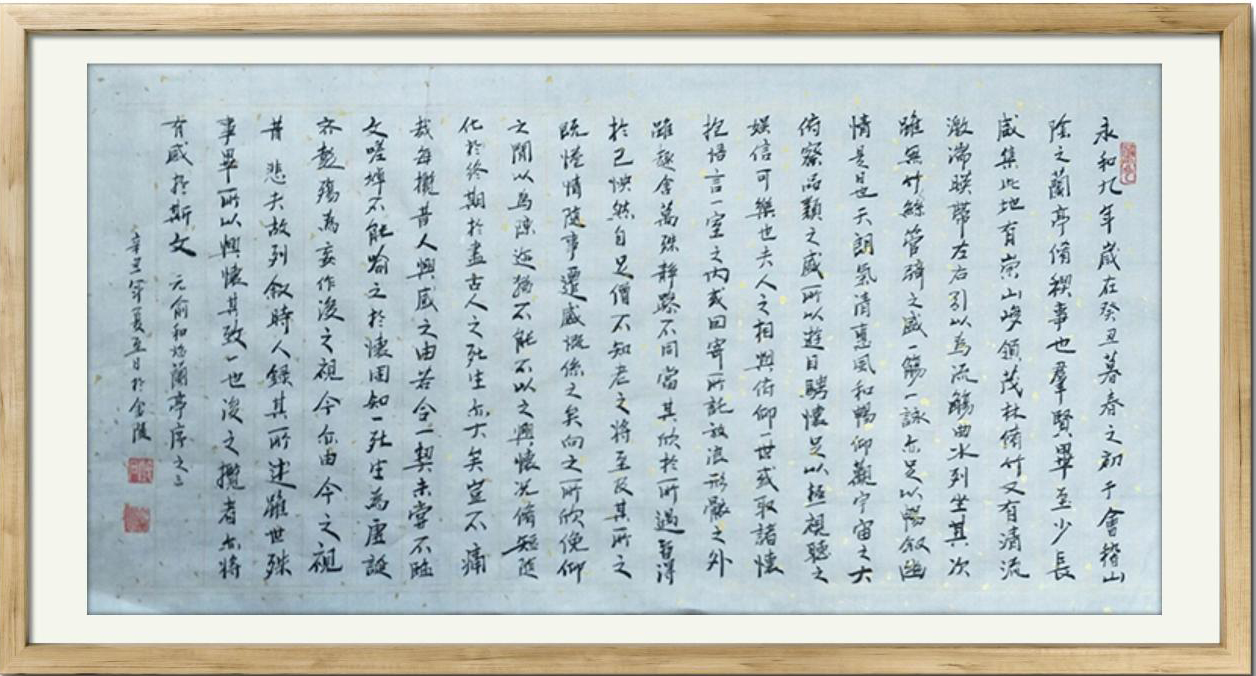 永和九年歲在癸丑暮春之初于會稽山
陰之蘭亭脩稧事也羣賢畢至少長
咸集此地有崇山峻領茂林脩竹又有清流
激湍暎帶左右引以為流觴曲水列坐其次
雖無竹絲管弦之盛一觴一詠亦足以暢叙幽
情是日也天朗氣清惠風和暢仰觀宇宙之大
俯察品類之盛所以遊目騁懷足以極視聽之
娛信可樂也夫人之相與俯仰一世或取諸懷
抱悟言一室之內或因寄所託放浪形骸之外
雖趣舍萬殊靜躁不同當其欣於所遇暫得
於己怏然自足曾不知老之將至及其所之
既惓情隨事遷感慨係之矣向之所欣俛仰
之間以為陳迹猶不能不以之興懷況脩短隨
化於終期於盡古人之死生亦大矣豈不痛
哉每攬昔人興感之由若合一契未嘗不臨
文嗟悼不能喻之於懷固知一死生為虛誕
齊彭殤為妄作後之視今亦由今之視
昔悲夫故列叙時人錄其所述雖世殊
事異所以興懷其致一也後之攬者亦將
有感於斯文 元俞和臨蘭亭序之三
辛丑年夏至日於金陵